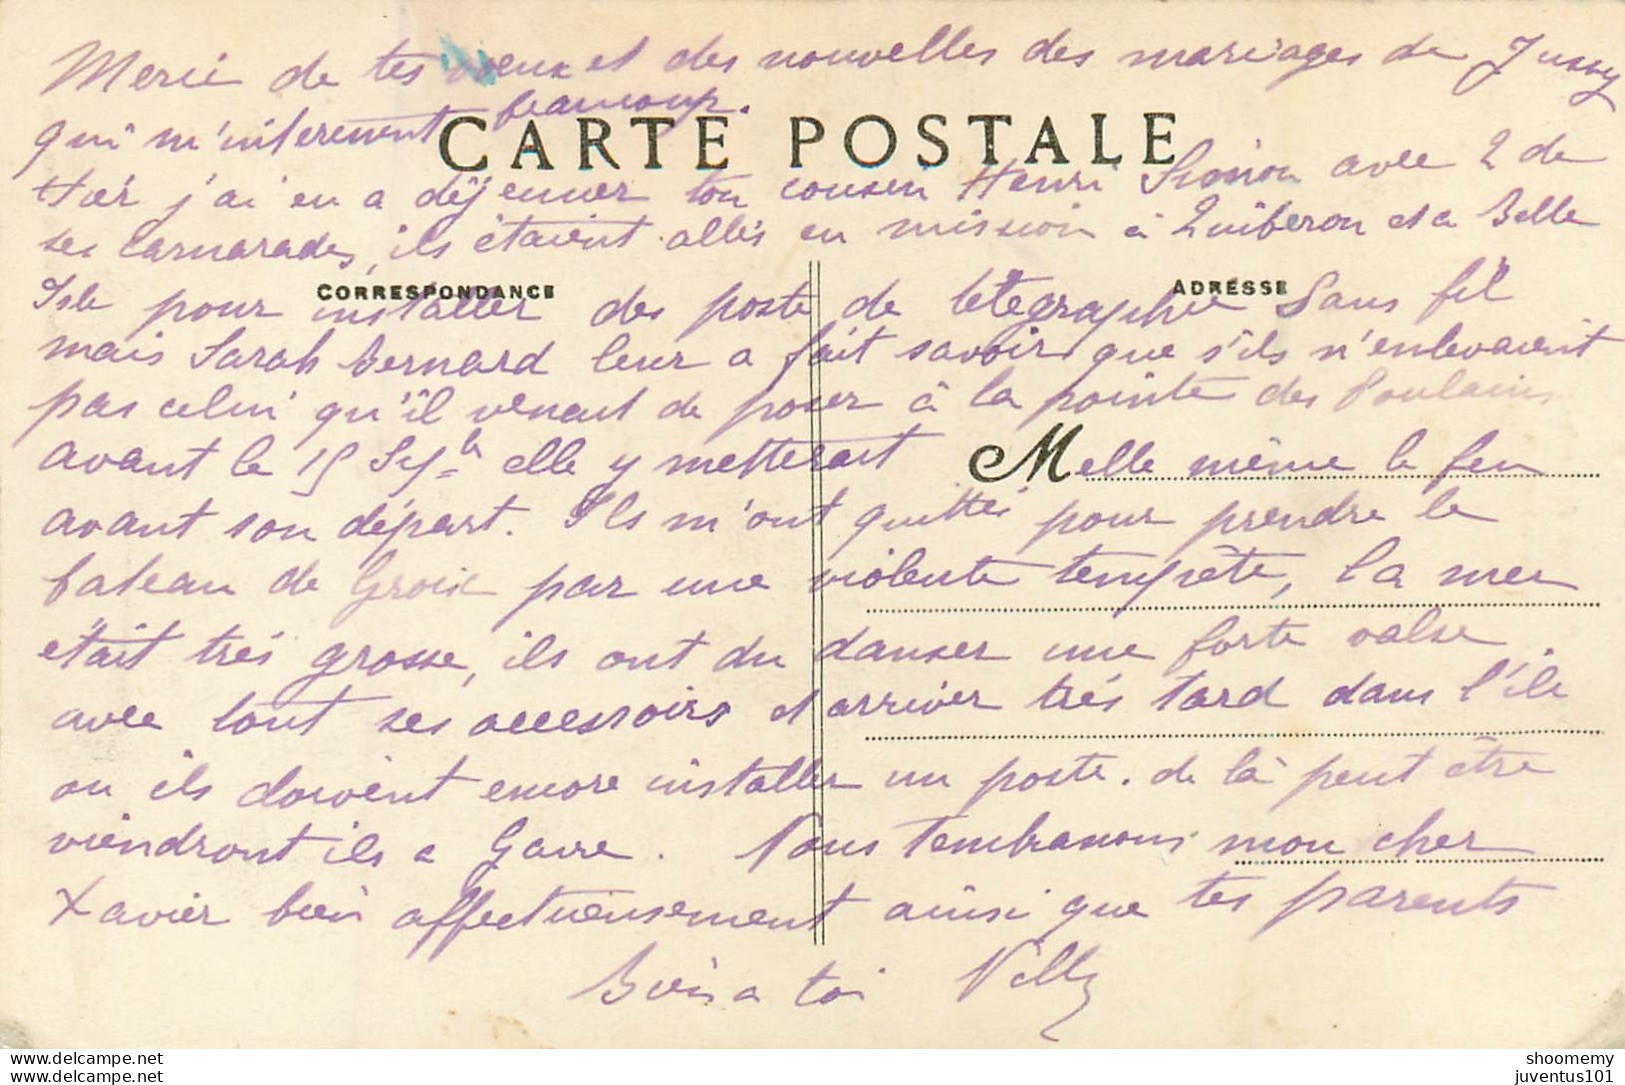 Merci de tes voeux et des nouvelles des mariages de Jussy
qui m'interessent beaucoup.
CARTE POSTALE
Hier j'ai eu a déjeuner ton cousin Henri Simon avec 2 de
ses camarades, ils étaient allés en mission à Quiberon et a Belle
CORRESPONDANCE
ADRESSE
Isle pour installer des poste de télégraphie Sans fil
mais Sarah Bernard leur a fait savoir que s'ils n'enlevaient
pas celui qu'il venait de poser à la pointe des Poulains
avant le 15 elle y metterait elle même le feu
M
avant son départ. Ils m'ont quittés pour prendre le
bateau de Groix par une violente tempête, la mer
était très grosse, ils ont du danser une forte valse
avec tout ses accessoirs et arriver très tard dans l'île
ou ils doivent encore installer un poste. de là peut être
viendront ils a Gavre. Nous t'embrassons mon cher
Xavier bien affectueusement ainsi que tes parents
Bien a toi
www.delcampe.net
www.delcampe.net
shoomemy
juventus101